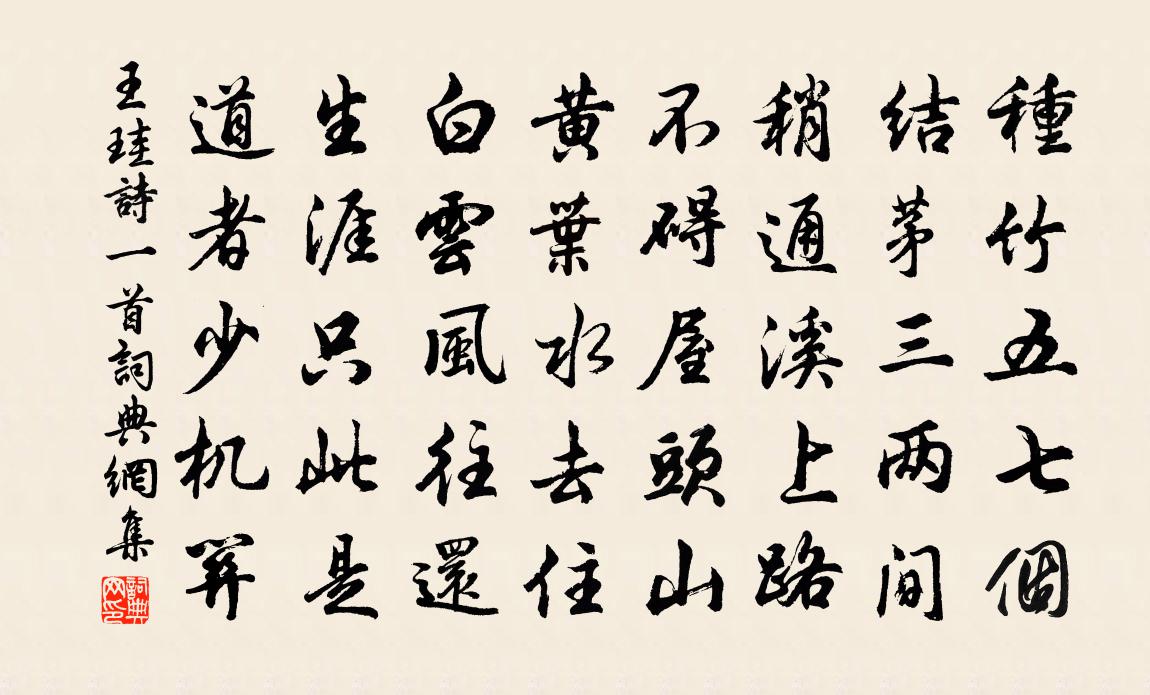 種竹五七個
結茅三两間
稍通溪上路
不碍屋頭山
黄葉水去住
白雲風往還
生涯只此是
道者少机關
王珪詩一首詞典網集
詞典网印